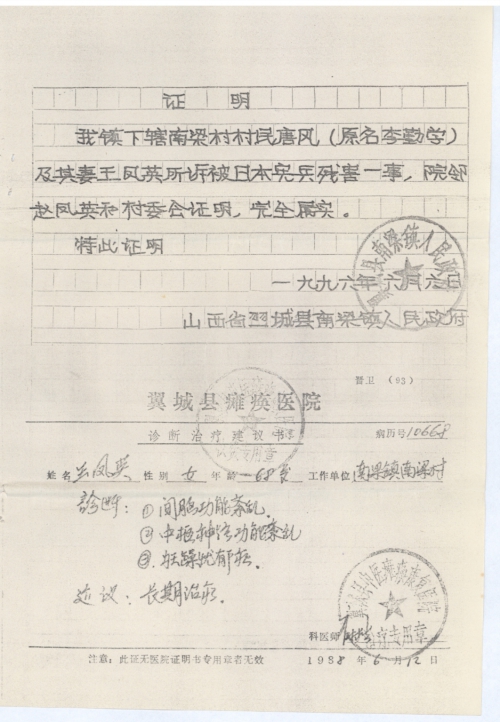 证 明
我镇下辖南梁村村民唐风(原名李勤学)
及其妻王凤英所诉被日本宪兵残害一事,院邻
赵凤英和村委会证明,完全属实。
特此证明
一九九六年六月六日
山西省翼城县南梁镇人民政府
晋卫 (93)
翼城县瘫痪医院
诊断治疗建议书
病历号10668
姓名 王凤英 性别 女 年龄 68岁 工作单位 南梁镇南梁村
診断: ① 间脑功能紊乱.
② 中枢神经功能紊乱
③ 忧郁症.
建议: 长期治疗.
科医师
注意:此证无医院证明书专用章者无效 1988年6月12日